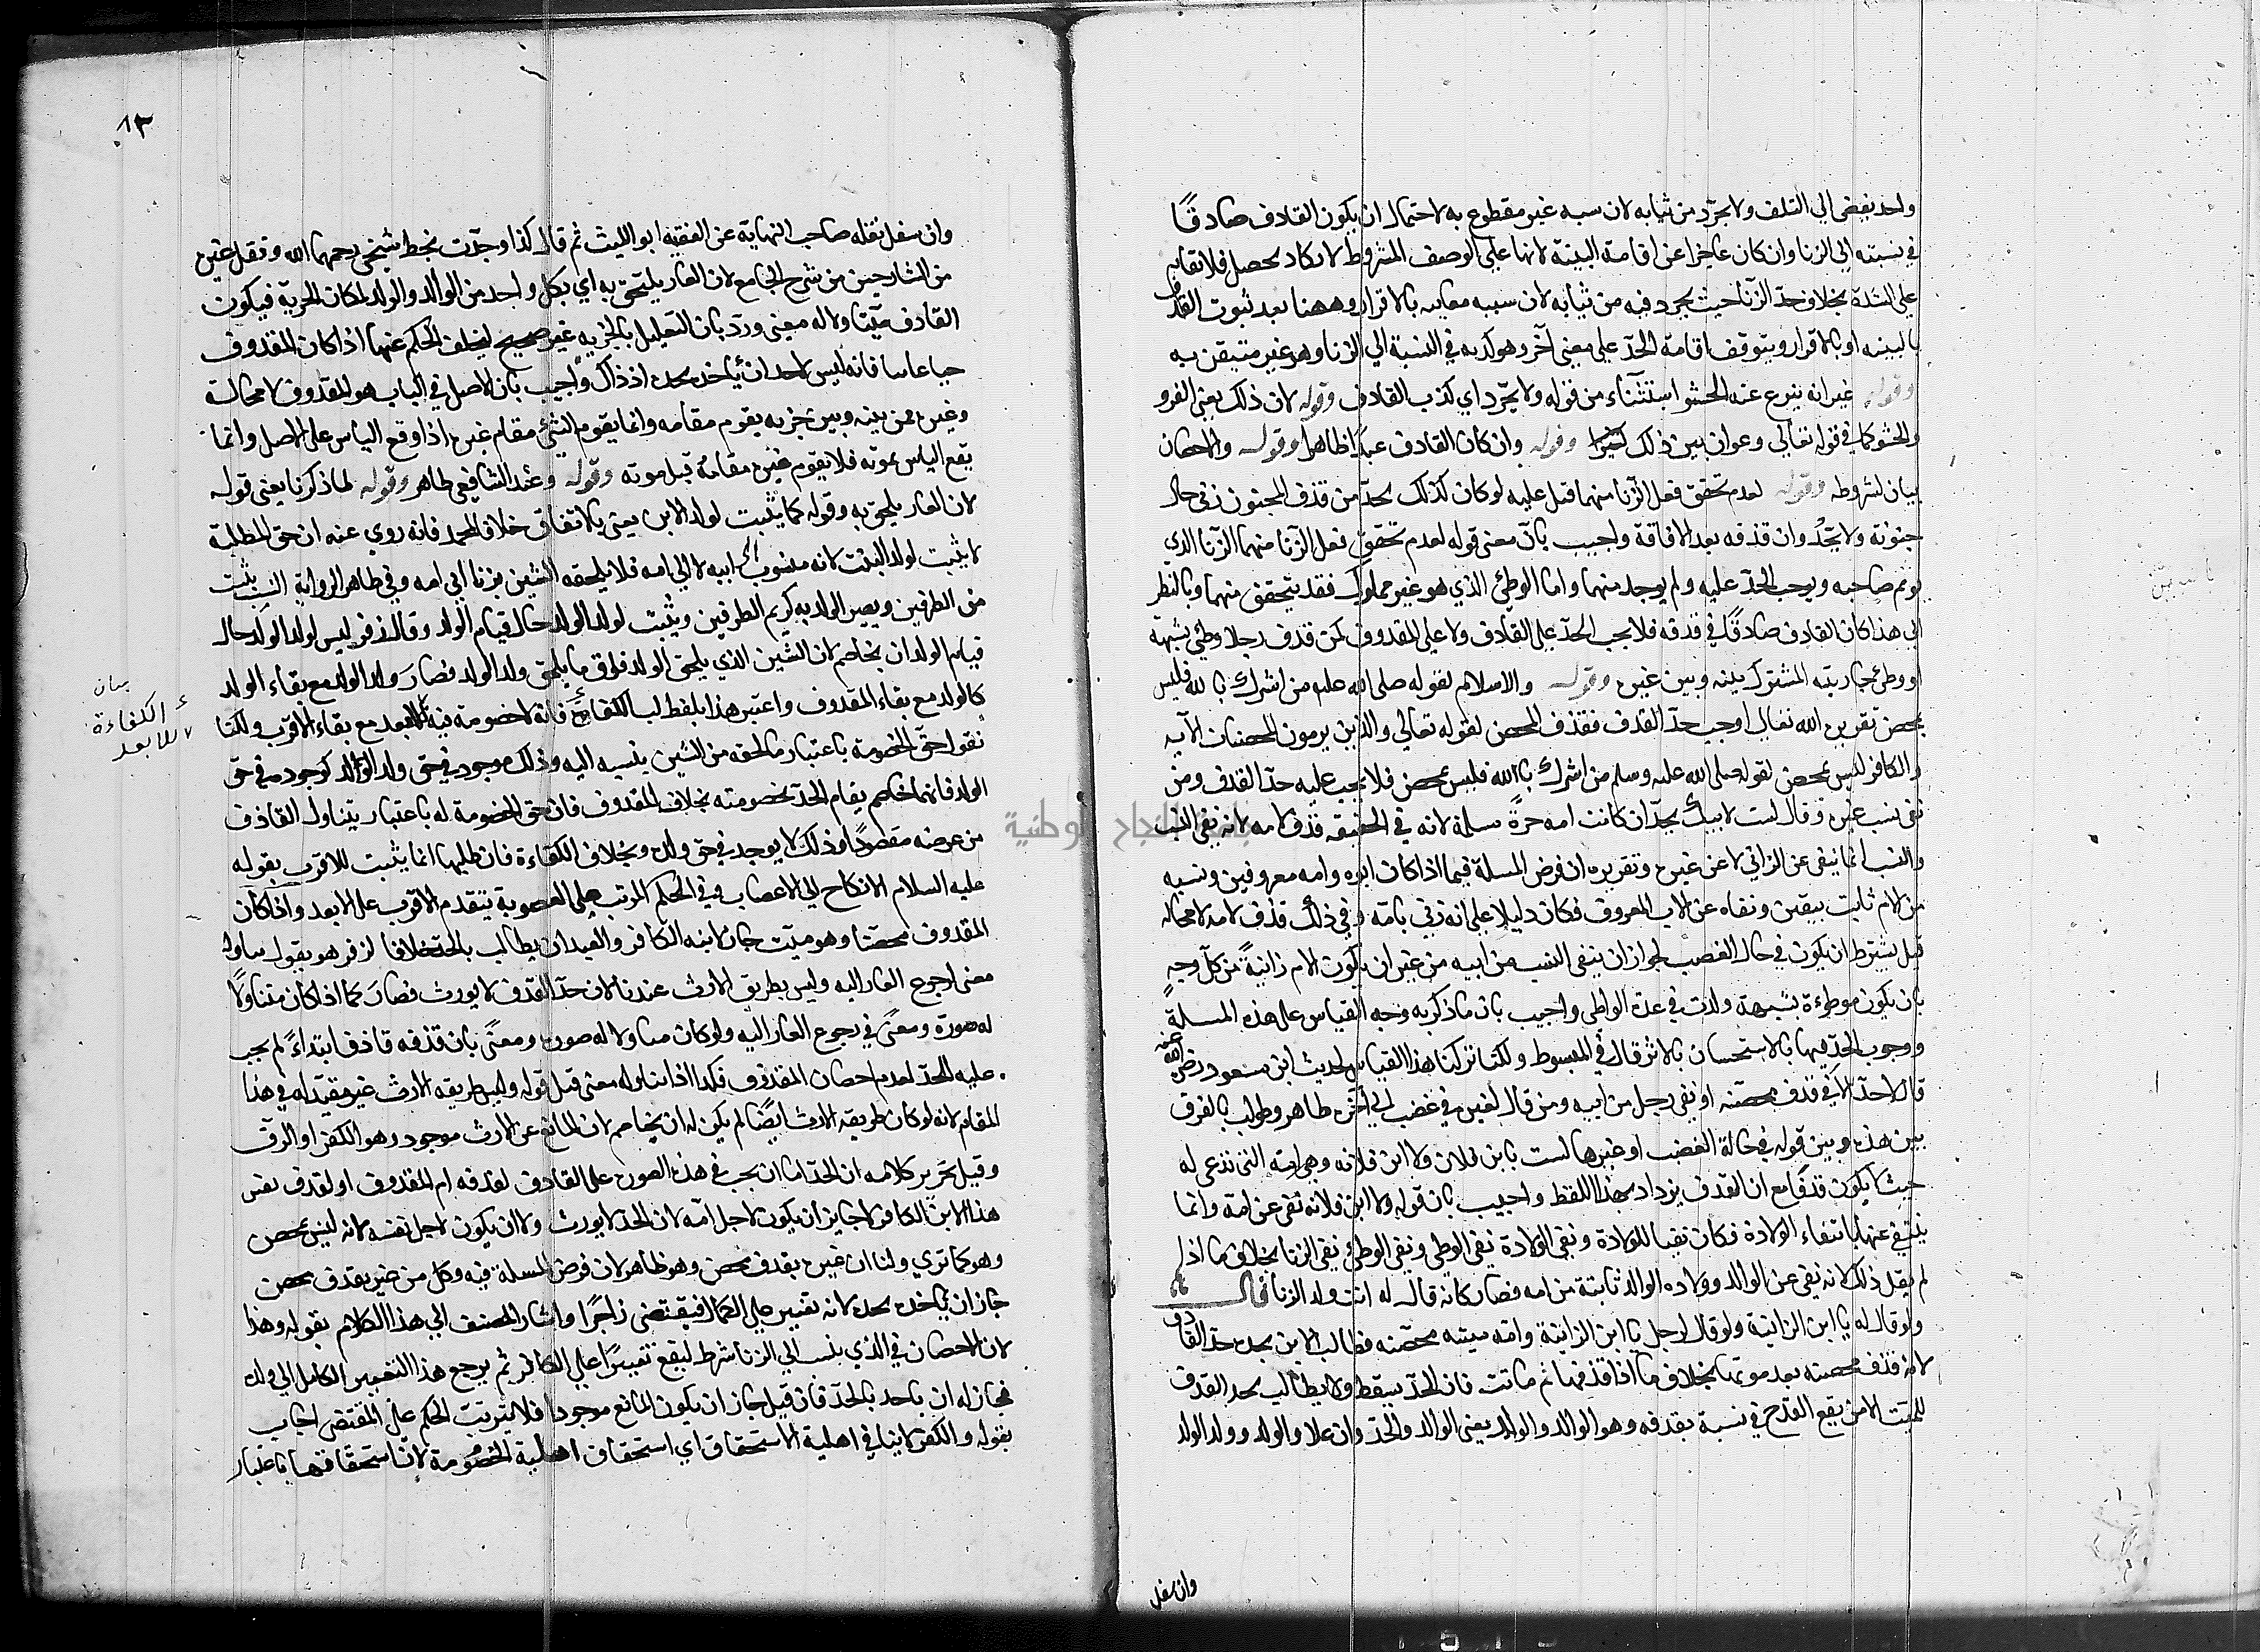 واحد يفضي الي التلف ولا يجرد من ثيابه لان سببه غير مقطوع به لاحتمال ان يكون القاذف صادقًا
في نسبته الي الزنا وان كان عاجزا عن اقامة البينة لانها علي الوصف المشروط لا يكاد يحصل فلا يقام
علي الشدة بخلاف حد الزنا حيث يجرد فيه من ثيابه لان سببه معاين بالاقرار وههنا بعد ثبوت القذف
بالبينه او بالاقرار ويتوقف اقامة الحد علي معنى آخر وهو كذبه في النسبة الي الزنا وهو غير متيقن به
وقوله غير انه ينزع عنه الحشو استثناء من قوله ولا يجرد اي كذب القاذف وقوله لان ذلك يعني الفرو
والحشو كما في قوله تعالي وعوان بين ذلك وقوله وان كان القاذف عبدا ظاهر وقوله والاحصان
بيان لشروطه وقوله لعدم تحقق فعل الزنا منهما قيل عليه لو كان كذلك لحد من قذف المجنون زنى حال
جنونه ولا يحد وان قذفه بعد الافاقة واجيب بان معنى قوله لعدم تحقق فعل الزنا منهما الزنا الذي
يؤثم صاحبه ويجب الحد عليه ولم يوجد منهما واما الوطئ الذي هو غير مملوك فقد يتحقق منهما وبالنظر
الي هذا كان القاذف صادقًا في قذفه فلا يجب الحد علي القاذف ولا علي المقذوف كمن قذف رجلا وطئ بشبهة
او وطئ جاريته المشترك بينه وبين غيره وقوله والاسلام لقوله صلى الله عليه من اشرك بالله فليس
بمحصن تقريره الله تعالي اوجب حد القذف فقذف المحصن لقوله تعالي والذين يرمون المحصنات الآيه
والكافر ليس بمحصن لقوله صلى الله عليه وسلم من اشرك بالله فليس بمحصن فلا يجب عليه حد القذف ومن
نفى نسب غيره وقال لست لابيك يحد ان كانت امه حرة مسلمة لانه في الحقيقه قذف لامه لانه نفي النسب
والنسب انما ينفى عن الزاني لا عن غيره وتقريره ان فرض المسلة فيما اذا كان ابوه وامه معروفين ونسبه
من الام ثابت بيقين ونفاه عن الاب المعروف فكان دليلا علي انه زنى بامه وفي ذلك قذف لامه لا محاله
قيل يشترط ان يكون في حال الغضب لجواز ان ينفى النسب من ابيه من غير ان يكون الام زانيةً من كل وجه
بان يكون موطوءة بشبهة ولدت في عدة الواطي واجيب بان ما ذكره وجه القياس علي هذه المسلة
ووجوب الحد فيها بالاستحسان بالاثر قال في المبسوط ولكنا تركنا هذا القياس لحديث ابن مسعود رضي الله عنه
قال لا حد الا في قذف محصنه او نفي رجل من ابيه ومن قال لغيره في غضب الي آخره ظاهر وطولب بالفرق
بين هذه وبين قوله في حالة الغضب او غيرها لست بابن فلان ولا ابن فلانه وهي امه التي تدعى له
حيث لا يكون قذفًا مع ان القذف يزداد بهذا اللفظ واجيب بان قوله ولا ابن فلانه نفى عن امه وانما
ينتفي عنها بانتفاء الولادة فكان نفيا للولادة ونفي الولادة نفي الوطي ونفي الوطي نفي الزنا بخلاف ما اذا
لم يقل ذلك لانه نفي عن الوالد وولاده الوالد ثابتة من امه فصار كانه قال له انت ولد الزنا قال
ولو قال له يا ابن الزانية ولو قال لرجل يا ابن الزانية وامه ميته محصنه فطالب الابن بحده حد القاذف
لانه قذف محصنه بعد موتها بخلاف ما اذا قذفها ثم ماتت فان الحد يسقط ولا يطالب بحد القذف
للميت الا من يقع القدح في نسبه بقذفه وهو الوالد والولد يعني الوالد والجد وان علا والولد وولد الولد
وان سفل
٨٣
وان سفل نقله صاحب النهاية عن الفقيه ابو الليث ثم قال كذا وجدت بخط شيخي رحمهما الله ونقل غيره
من الشارحين من شرح الجامع لان العار يلتحق به اي بكل واحد من الوالد والولد لمكان الجزية فيكون
القاذف متناولا له معنى ورد بان التعليل بالجزيه غير صحيح لتخلف الحكم عنها اذا كان المقذوف
حيا غائبا فانه ليس لاحد ان يأخذ بحده اذ ذاك واجيب بان الاصل في الباب هو المقذوف لا محالة
وغيره ممن بينه وبينه جزيه يقوم مقامه وانما يقوم الشئ مقام غيره اذا وقع الياس على الاصل وانما
يقع الياس بموته فلا يقوم غيره مقامه قبل موته وقوله وعند الشافعي ظاهر وقوله لما ذكرنا يعني قوله
لان العار يلحق به وقوله كما يثبت لولد الابن يعني بالاتفاق خلافا لمحمد فانه روي عنه ان حق المطالبة
لا يثبت لولد البنت لانه منسوب الي ابيه لا الي امه فلا يلحقه الشين بزنا ابي امه وفي ظاهر الرواية النسب يثبت
من الطرفين ويصير الولد به كريم الطرفين ويثبت لولد الولد حال قيام الولد وقال زفر ليس لولد الولد حال
قيام الولد ان يخاصم لان الشين الذي يلحق الولد فوق ما يلحق ولد الولد فصار ولد الولد مع بقاء الولد
كالولد مع بقاء المقذوف واعتبر هذا بطلب الكفاءة فانه لا خصومة فيه للابعد مع بقاء الاقرب ولكنا
نقول حق الخصومة باعتبار ما لحقه من الشين بنسبه اليه وذلك موجود في حق ولد الولد كوجوده في حق
الولد فايهما خاصم يقام الحد بخصومته بخلاف المقذوف فان حق الخصومة له باعتبار يتناول القاذف
من عرضه مقصودًا وذلك لا يوجد في حق ولده وبخلاف الكفاءة فان طلبها انما يثبت للاقرب بقوله
عليه السلام الانكاح الي الاعصاب وفي الحكم المرتب علي العصوبة يتقدم الاقرب على الابعد واذا كان
المقذوف محصنا وهو ميت جاز لابنه الكافر والعبد ان يطالب بالحد خلافا لزفر هو يقول تناوله
معنى لرجوع العار اليه وليس بطريق الارث عندنا لان حد القذف لا يورث فصار كما اذا كان متناولًا
له صورة ومعنًى في رجوع العار اليه ولو كان متناولا له صورة ومعنًى بان قذفه قاذف ابتداءً لم يجب
عليه الحد لعدم احصان المقذوف فكذا اذا تناوله معنى قيل قوله وليس طريقه الارث غير مقيد له في هذا
المقام لانه لو كان طريقه الارث ايضًا لم يكن له ان يخاصم لان المانع عن الارث موجود وهو الكفر او الرق
وقيل تحرير كلامه ان الحد اما ان يجب في هذه الصورة على القاذف لقذفه ام المقذوف او لقذف نفس
هذا الابن الكافر لا جايز ان يكون لاجل امه لان الحد لا يورث ولا ان يكون لاجل نفسه لانه ليس بمحصن
وهو كما تري ولنا ان غيره بقذف محصن وهو ظاهر لان فرض المسلة فيه وكل من غير بقذف محصن
جاز ان ياخذه بحده لانه تعيير علي الكمال فيقتضى زاجرًا واشار المصنف الي هذا الكلام بقوله وهذا
لان الاحصان في الذي ينسب الي الزنا شرط ليقع تعييرًا علي الكافر ثم يرجع هذا التعيير الكامل الي ولده
فجاز له ان ياخذ بالحد فان قيل جاز ان يكون المانع موجودا فلا يترتب الحكم علي المقتضى اجاب
بقوله والكفر لا ينافي اهلية الاستحقاق اي استحقاق اهلية الخصومة لان استحقاقها باعتبار
بيان
الكفاءة
للابعد
جامعة النجاح الوطنية